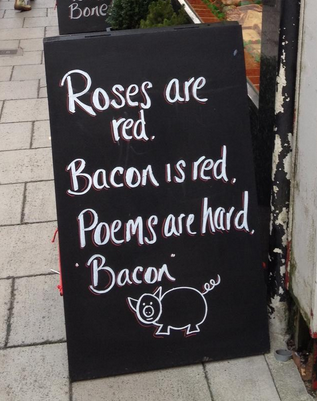 Bone
Roses are
red.
Bacon is red.
Poems are hard.
"Bacon"